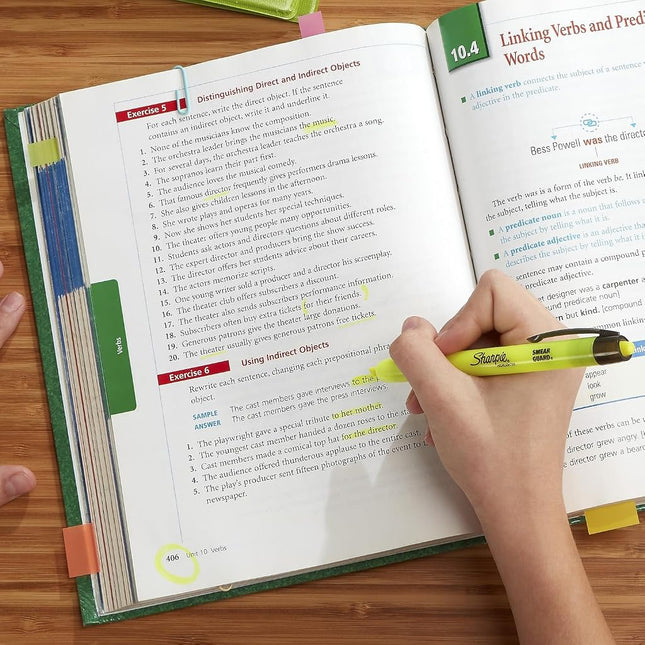 Exercise 5 Distinguishing Direct and Indirect Objects
For each sentence, write the direct object. If the sentence
contains an indirect object, write it and underline it.
1. None of the musicians know the composition.
2. The orchestra leader brings the musicians the music.
3. For several days, the orchestra leader teaches the orchestra a song.
4. The sopranos learn their part first.
5. The audience loves the musical comedy.
6. That famous director frequently gives performers drama lessons.
7. She also gives children lessons in the afternoon.
8. She wrote plays and operas for many years.
9. Now she shows her students her special techniques.
10. The theater offers young people many opportunities.
11. Students ask actors and directors questions about different roles.
12. The expert director and producers bring the show success.
13. The director offers her students advice about their careers.
14. The actors memorize scripts.
15. One young writer sold a producer and a director his screenplay.
16. The theater club offers subscribers a discount.
17. The theater also sends subscribers performance information.
18. Subscribers often buy extra tickets for their friends.
19. Generous patrons give the theater large donations.
20. The theater usually gives generous patrons free tickets.
Exercise 6 Using Indirect Objects
Rewrite each sentence, changing each prepositional phra
object.
SAMPLE The cast members gave interviews to the
ANSWER The cast members gave the press interviews
1. The playwright gave a special tribute to her mother.
2. The youngest cast member handed a dozen roses to the
3. Cast members made a comical top hat for the director.
4. The audience offered thunderous applause to the entire cast
5. The play's producer sent fifteen photographs of the event to
newspaper.
406 Unit 10 Verbs
Verbs
10.4 Linking Verbs and Predi
Words
A linking verb connects the subject of a sentence
adjective in the predicate.
Bess Powell was the directo
LINKING VERB
The verb was is a form of the verb be. It link
the subject, telling what the subject is.
A predicate noun is a noun that follows
the subject by telling what it is.
A predicate adjective is an adjective tha
describes the subject by telling what it i
sentence may contain a compound
predicate adjective.
et designer was a carpenter a
und predicate noun]
but kind. [Compound
mmon linking
Sharpie SMEAR GUARD
appear
look
grow
of these verbs can be u
director grew angry. [
director grew a bear